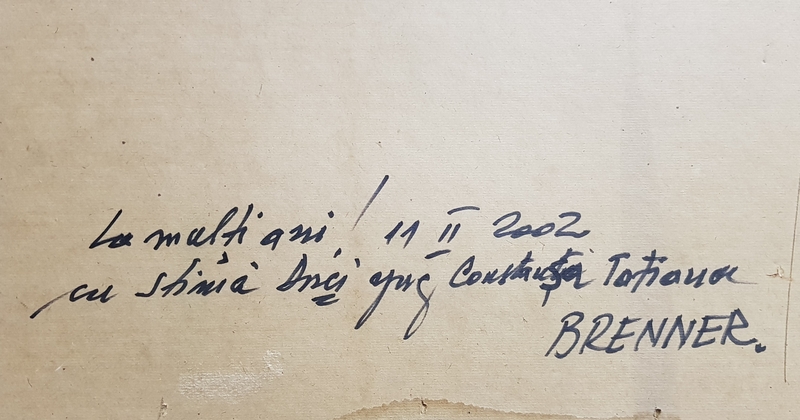 La mulți ani! 11 II 2002
cu stimă Dnei ing Constanța Tatiana
BRENNER.